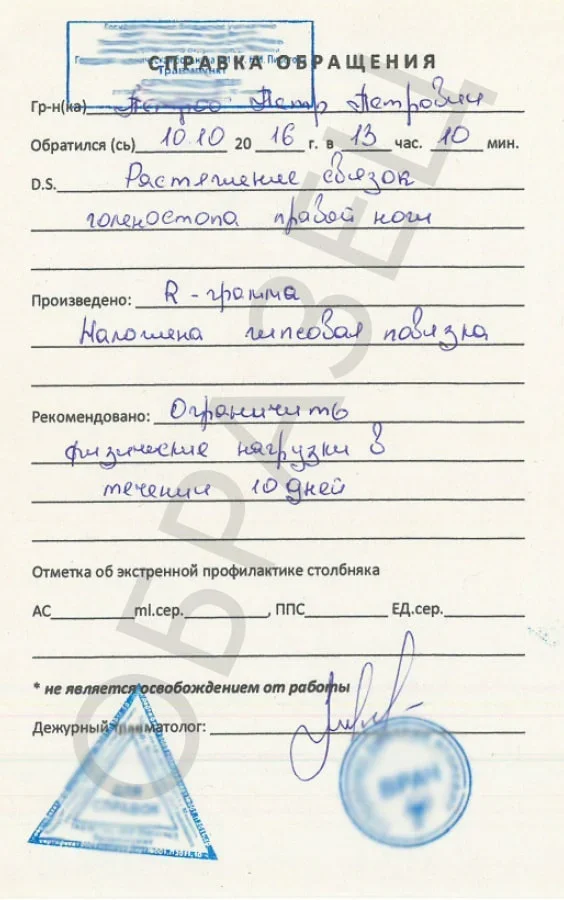 СПРАВКА ОБРАЩЕНИЯ
Травмпункт
Гр-н(ка) Петров Петр Петрович
Обратился (сь) 10.10 20 16 г. в 13 час. 10 мин.
D.S. Растяжение связок
голеностопа правой ноги
Произведено: R-грамма
Наложена гипсовая повязка
Рекомендовано: Ограничить
физические нагрузки в
течении 10 дней
Отметка об экстренной профилактике столбняка
АС ml.сер. , ППС ЕД.сер.
* не является освобождением от работы
Дежурный травматолог:
ДЛЯ
СПРАВОК
ВРАЧ
ОБРАЗЕЦ